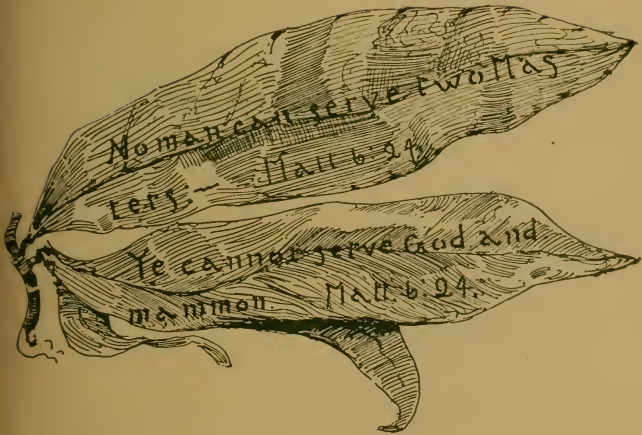 No man can serve two Mas
ters – Matt 6:24.
Ye cannot serve God and
mammon. Matt. 6:24.